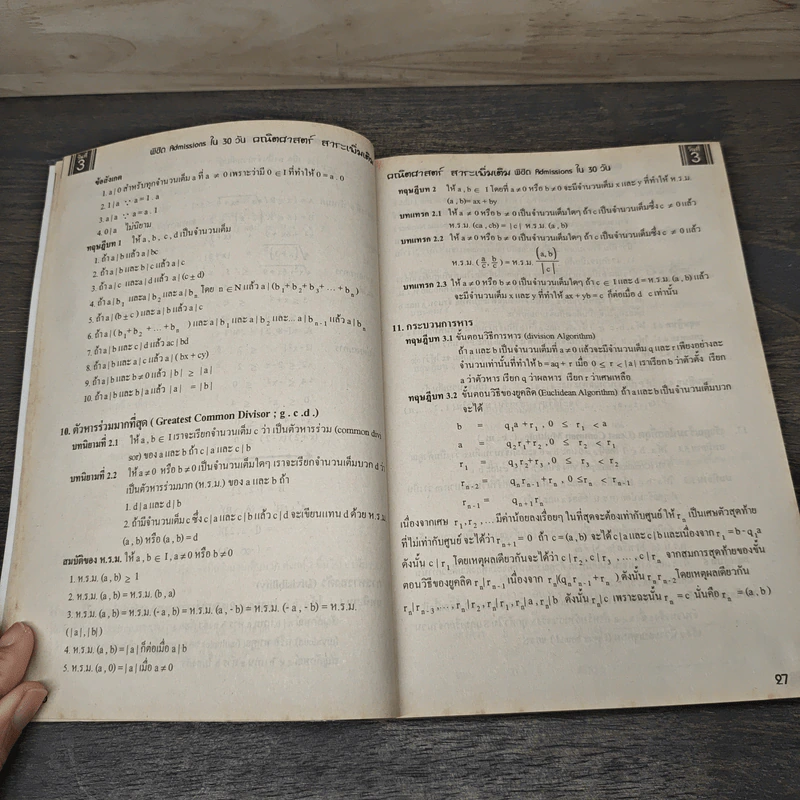 วันที่ 3
พิชิต Admissions ใน 30 วัน คณิตศาสตร์ สาระเพิ่มเติม
ข้อสังเกต
1. a | 0 สำหรับทุกจำนวนเต็ม a ที่ a ≠ 0 เพราะว่ามี 0 ∈ I ที่ทำให้ 0 = a . 0
2. 1 | a ∵ a = 1 . a
3. a | a ∵ a = a . 1
4. 0 | a ไม่นิยาม
ทฤษฎีบท 1 ให้ a , b , c , d เป็นจำนวนเต็ม
1. ถ้า a | b แล้ว a | bc
2. ถ้า a | b และ b | c แล้ว a | c
3. ถ้า a | c และ a | d แล้ว a | (c ± d)
4. ถ้า a | b₁ และ a | b₂ และ a | bₙ โดย n ∈ N แล้ว a | (b₁ + b₂ + b₃ + … + bₙ)
5. ถ้า a | (b ± c) และ a | b แล้ว a | c
6. ถ้า a | ( b₁ + b₂ + … + bₙ ) และ a | b₁ และ a | b₂ และ... a | bₙ₋₁ แล้ว a | bₙ
7. ถ้า a | b และ c | d แล้ว ac | bd
8. ถ้า a | b และ a | c แล้ว a | ( bx + cy)
9. ถ้า a | b และ b ≠ 0 แล้ว | b | ≥ | a |
10. ถ้า a | b และ b | a แล้ว | a | = | b |
10. ตัวหารร่วมมากที่สุด ( Greatest Common Divisor ; g . c .d .)
บทนิยามที่ 2.1 ให้ a , b ∈ I เราจะเรียกจำนวนเต็ม c ว่า เป็นตัวหารร่วม (common divi
sor) ของ a และ b ถ้า c | a และ c | b
บทนิยามที่ 2.2 ให้ a ≠ 0 หรือ b ≠ 0 เป็นจำนวนเต็มใดๆ เราจะเรียกจำนวนเต็มบวก d ว่า
เป็นตัวหารร่วมมาก (ห.ร.ม.) ของ a และ b ถ้า
1. d | a และ d | b
2. ถ้ามีจำนวนเต็ม c ซึ่ง c | a และ c | b แล้ว c | d จะเขียนแทน d ด้วย ห.ร.ม
(a , b) หรือ (a , b) = d
สมบัติของ ห.ร.ม. ให้ a , b ∈ I , a ≠ 0 หรือ b ≠ 0
1. ห.ร.ม. (a , b) ≥ 1
2. ห.ร.ม. (a , b) = ห.ร.ม. (b , a)
3. ห.ร.ม. (a , b) = ห.ร.ม. (- a , b) = ห.ร.ม. (a , - b) = ห.ร.ม. (- a , - b) = ห.ร.ม.
( | a | , | b | )
4. ห.ร.ม. (a , b) = | a | ก็ต่อเมื่อ a | b
5. ห.ร.ม. (a , 0) = | a | เมื่อ a ≠ 0
คณิตศาสตร์ สาระเพิ่มเติม พิชิต Admissions ใน 30 วัน
วันที่ 3
ทฤษฎีบท 2 ให้ a , b ∈ I โดยที่ a ≠ 0 หรือ b ≠ 0 จะมีจำนวนเต็ม x และ y ที่ทำให้ ห.ร.ม.
(a , b) = ax + by
บทแทรก 2.1 ให้ a ≠ 0 หรือ b ≠ 0 เป็นจำนวนเต็มใดๆ ถ้า c เป็นจำนวนเต็มซึ่ง c ≠ 0 แล้ว
ห.ร.ม. (ca , cb) = | c | ห.ร.ม. (a , b)
บทแทรก 2.2 ให้ a ≠ 0 หรือ b ≠ 0 เป็นจำนวนเต็มใดๆ ถ้า c เป็นจำนวนเต็มซึ่ง c ≠ 0 แล้ว
ห.ร.ม. (a/c , b/c) = ห.ร.ม. (a, b)/| c |
บทแทรก 2.3 ให้ a ≠ 0 หรือ b ≠ 0 เป็นจำนวนเต็มใดๆ ถ้า c ∈ I และ d = ห.ร.ม. (a , b) แล้ว
จะมีจำนวนเต็ม x และ y ที่ทำให้ ax + yb = c ก็ต่อเมื่อ d c เท่านั้น
11. กระบวนการหาร
ทฤษฎีบท 3.1 ขั้นตอนวิธีการหาร (division Algorithm)
ถ้า a และ b เป็นจำนวนเต็มที่ a ≠ 0 แล้วจะมีจำนวนเต็ม q และ r เพียงอย่างละ
จำนวนเท่านั้นที่ทำให้ b = aq + r เมื่อ 0 ≤ r < | a | เราเรียก b ว่าตัวตั้ง เรียก
a ว่าตัวหาร เรียก q ว่าผลหาร เรียก r ว่าเศษเหลือ
ทฤษฎีบท 3.2 ขั้นตอนวิธีของยุคลิด (Euclidean Algorithm) ถ้า a และ b เป็นจำนวนเต็มบวก
จะได้
b = q₁a + r₁ , 0 ≤ r₁ < a
a = q₂r₁ + r₂, 0 ≤ r₂ < r₁
r₁ = q₃r₂ + r₃, 0 ≤ r₃ < r₂
rₙ₋₂ = qₙrₙ₋₁ + rₙ , 0 ≤ rₙ < rₙ₋₁
rₙ₋₁ = qₙ₊₁rₙ
เนื่องจากเศษ r₁, r₂, … มีค่าน้อยลงเรื่อยๆ ในที่สุดจะต้องเท่ากับศูนย์ ให้ rₙ เป็นเศษตัวสุดท้าย
ที่ไม่เท่ากับศูนย์ จะได้ว่า rₙ₊₁ = 0 ถ้า c = (a, b) จะได้ c | a และ c | b และเนื่องจาก r₁ = b - q₁a
ดังนั้น c | r₁ โดยเหตุผลเดียวกันจะได้ว่า c | r₂, c | r₃ , … , c | rₙ จากสมการสุดท้ายของขั้น
ตอนวิธีของยุคลิด rₙ | rₙ₋₁ เนื่องจาก rₙ|(qₙrₙ₋₁ + rₙ ) ดังนั้น rₙ | rₙ₋₂ โดยเหตุผลเดียวกัน
rₙ | rₙ₋₃, … , rₙ | r₂, rₙ | r₁, rₙ | a, rₙ | b ดังนั้น rₙ | c เพราะฉะนั้น rₙ = c นั่นคือ rₙ = (a , b)
27